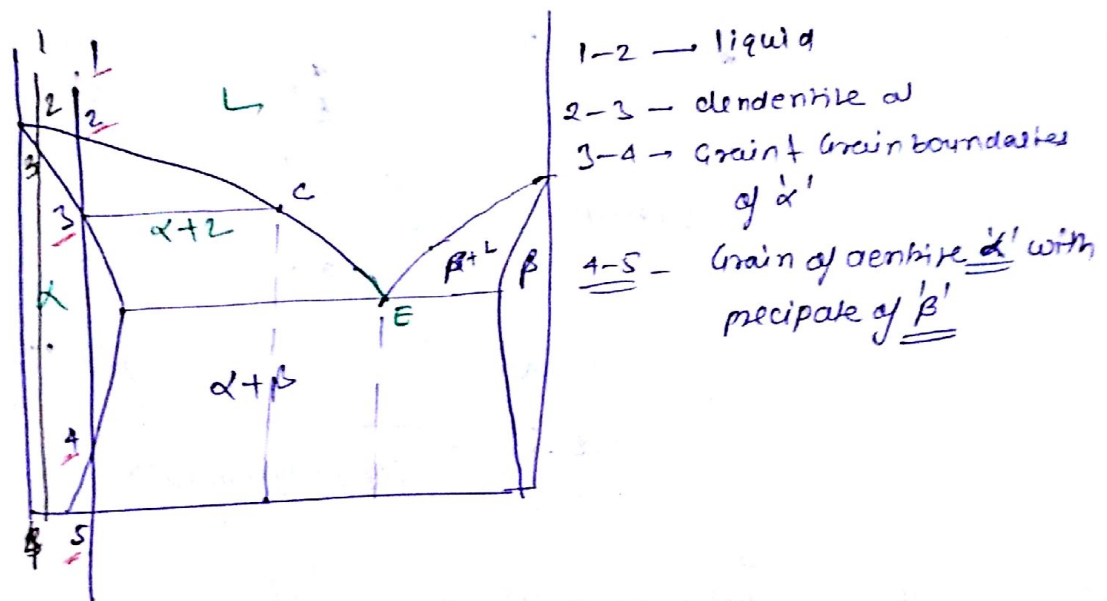 1
1
2
L
2
3
C
3
α+2
β+L
β
α
E
α+β
4
5
1-2 — liquid
2-3 — dendentrite α
3-4 → Grain + Grain boundaries
of 'α'
4-5 — Grain of aentrite 'α' with
precipate of 'β'